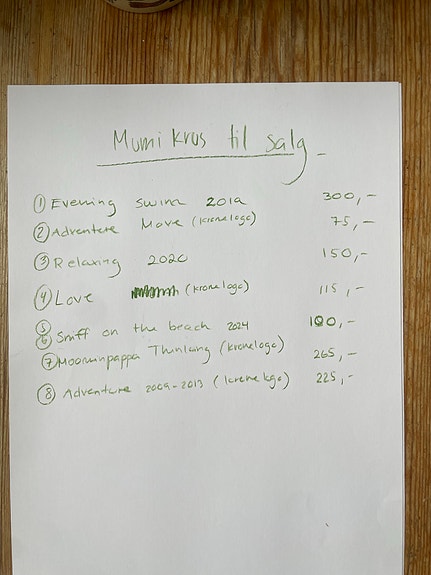 Mumi krus til salg
① Evening swim 2019 300,-
② Adventure Move (kronelogo) 75,-
③ Relaxing 2020 150,-
④ Love (kronelogo) 115,-
⑤
⑥ Sniff on the beach 2024 100,-
⑦ Moominpappa Thinking (kronelogo) 265,-
⑧ Adventure 2009-2013 (kronelogo) 225,-